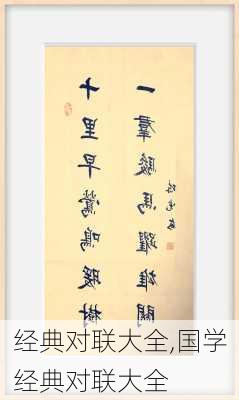 十里早鶯鳴暖樹
一羣駿馬躍雄關
经典对联大全,国学
经典对联大全